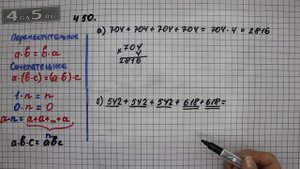 4os5.ru
450.
Переместительное
a·b = b·a
Сочетательное
a·(b·c)=(a·b)·c
1·n = n
0·n = 0
a·n = a+a+...+a
n
a·b·c = abc
а) 704 + 704 + 704 + 704 = 704 · 4 = 2816
× 704
4
2816
б) 542 + 542 + 542 + 618 + 618 =